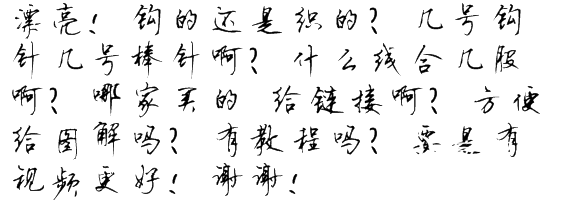 漂亮！ 钩的还是织的？ 几号钩
针几号棒针啊？ 什么线合几股
啊？ 哪家买的 给链接啊？ 方便
给图解吗？ 有教程吗？ 要是有
视频更好！ 谢谢！